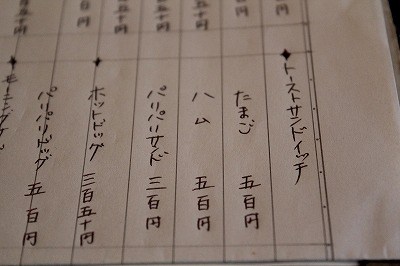 ✦トーストサンドイッチ
たまご 五百円
ハム 五百円
パリパリサンド 三百円
✦ホットドッグ 三百五十円
パーパリドッグ 五百円